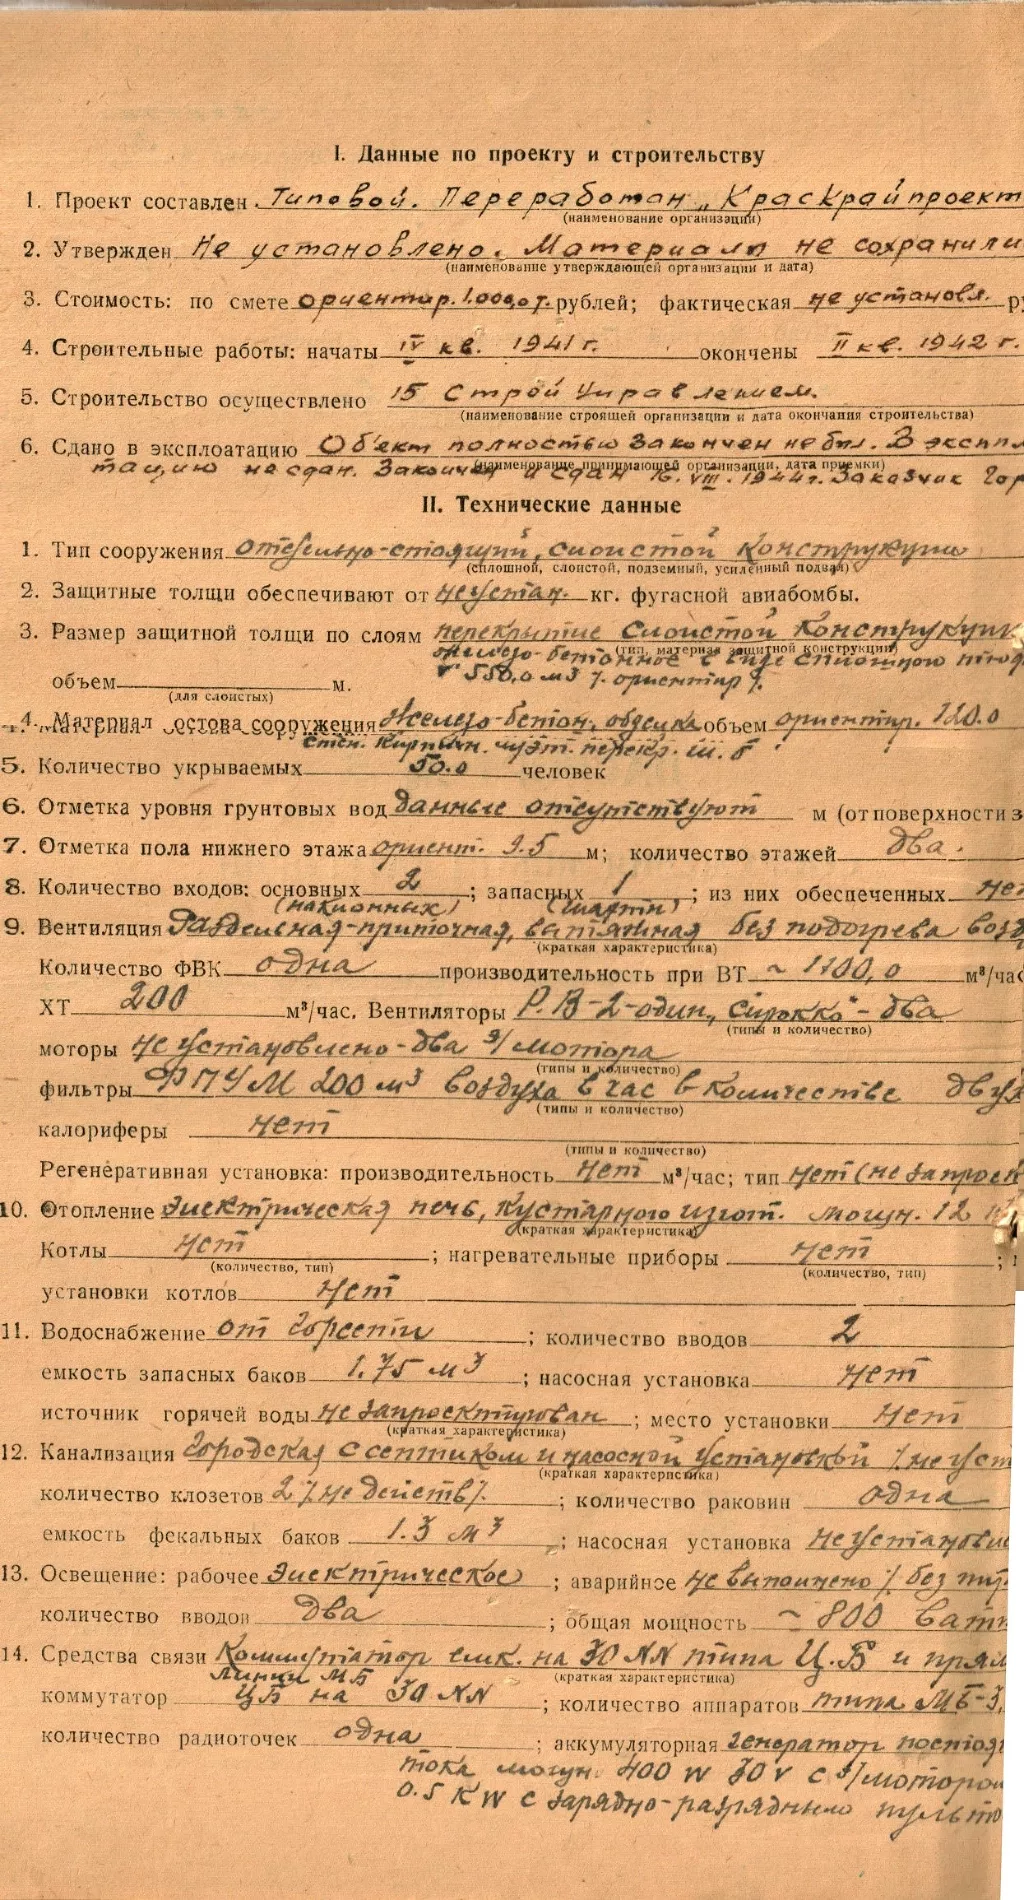 I. Данные по проекту и строительству
1. Проект составлен Типовой. Переработан „Краскрайпроект
(наименование организации)
2. Утвержден Не установлено. Материалы не сохранили
(наименование утверждающей организации и дата)
3. Стоимость: по смете ориентир. 1.000,0 т. рублей; фактическая не установл. ру
4. Строительные работы: начаты IV кв. 1941 г. окончены II кв. 1942 г.
5. Строительство осуществлено 15 Строй Управлением.
(наименование строящей организации и дата окончания строительства)
6. Сдано в эксплоатацию Объект полностью закончен не был. В экспл
(наименование принимающей организации, дата приемки)
тацию не сдан. Закончен и сдан 16.VIII.1944 г. Заказчик Гор
II. Технические данные
1. Тип сооружения отдельно-стоящий, слоистой конструкции
(сплошной, слоистой, подземный, усиленный подвал)
2. Защитные толщи обеспечивают от не устан. кг. фугасной авиабомбы.
3. Размер защитной толщи по слоям перекрытие слоистой конструкции
(тип, материал защитной конструкции)
железо-бетонное в виде сплошного
объем м. V 550,0 м3 /. ориентир /.
(для слоистых)
4. Материал остова сооружения Железо-бетон, обделка объем ориентир. 120.0
стен. кирпичн. перекр. ж. б
5. Количество укрываемых 50.0 человек
6. Отметка уровня грунтовых вод данные отсутствуют м (от поверхности з
7. Отметка пола нижнего этажа ориент. 9.5 м; количество этажей два.
8. Количество входов: основных 2 ; запасных 1 ; из них обеспеченных нет
(наклонных) (шахтн)
9. Вентиляция Раздельная-приточная, вытяжная без подогрева возд
(краткая характеристика)
Количество ФВК одна производительность при ВТ ~ 1100,0 м³/час
ХТ 200 м³/час. Вентиляторы Р.В-2-один, „Сирокко" - два
(типы и количество)
моторы не установлено - два э/мотора
(типы и количество)
фильтры ФПУМ 200 м3 воздуха в час в количестве двух
(типы и количество)
калориферы нет
(типы и количество)
Регенеративная установка: производительность нет м³/час; тип нет (не запроек
10. Отопление Электрическая печь, кустарного изгот. мощн. 12
(краткая характеристика)
Котлы нет ; нагревательные приборы нет ;
(количество, тип) (количество, тип)
установки котлов нет
11. Водоснабжение от Горсети ; количество вводов 2
емкость запасных баков 1.75 м3 ; насосная установка нет
источник горячей воды не запроектирован ; место установки нет
(краткая характеристика)
12. Канализация Городская с септиком и насосной установкой /не уст
(краткая характеристика)
количество клозетов 2 /не действ/. ; количество раковин одна
емкость фекальных баков 1.3 м3 ; насосная установка не установле
13. Освещение: рабочее Электрическое ; аварийное не выполнено /без
количество вводов два ; общая мощность ~ 800 ватт
14. Средства связи Коммутатор емк. на 30 NN типа Ц.Б и прям
линии МБ (краткая характеристика)
коммутатор ЦБ на 30 NN ; количество аппаратов типа МБ-3,
количество радиоточек одна ; аккумуляторная генератор постоян
тока мощн. 400 w 30 v с э/мотором
0.5 KW с зарядно-разрядным пульто